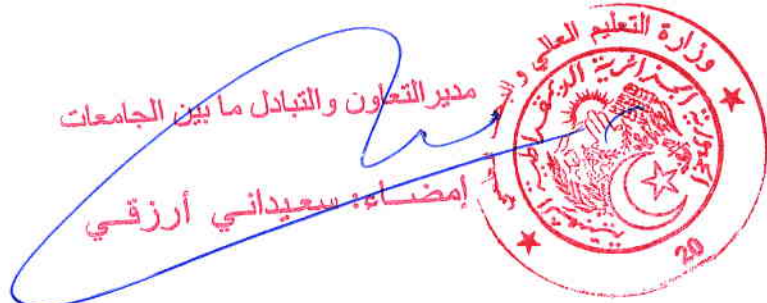 مدير التعاون والتبادل ما بين الجامعات
إمضاء: سعيداني أرزقي
وزارة التعليم العالي و
الجمهورية الجزائرية الديمقراطية الشعبية
20